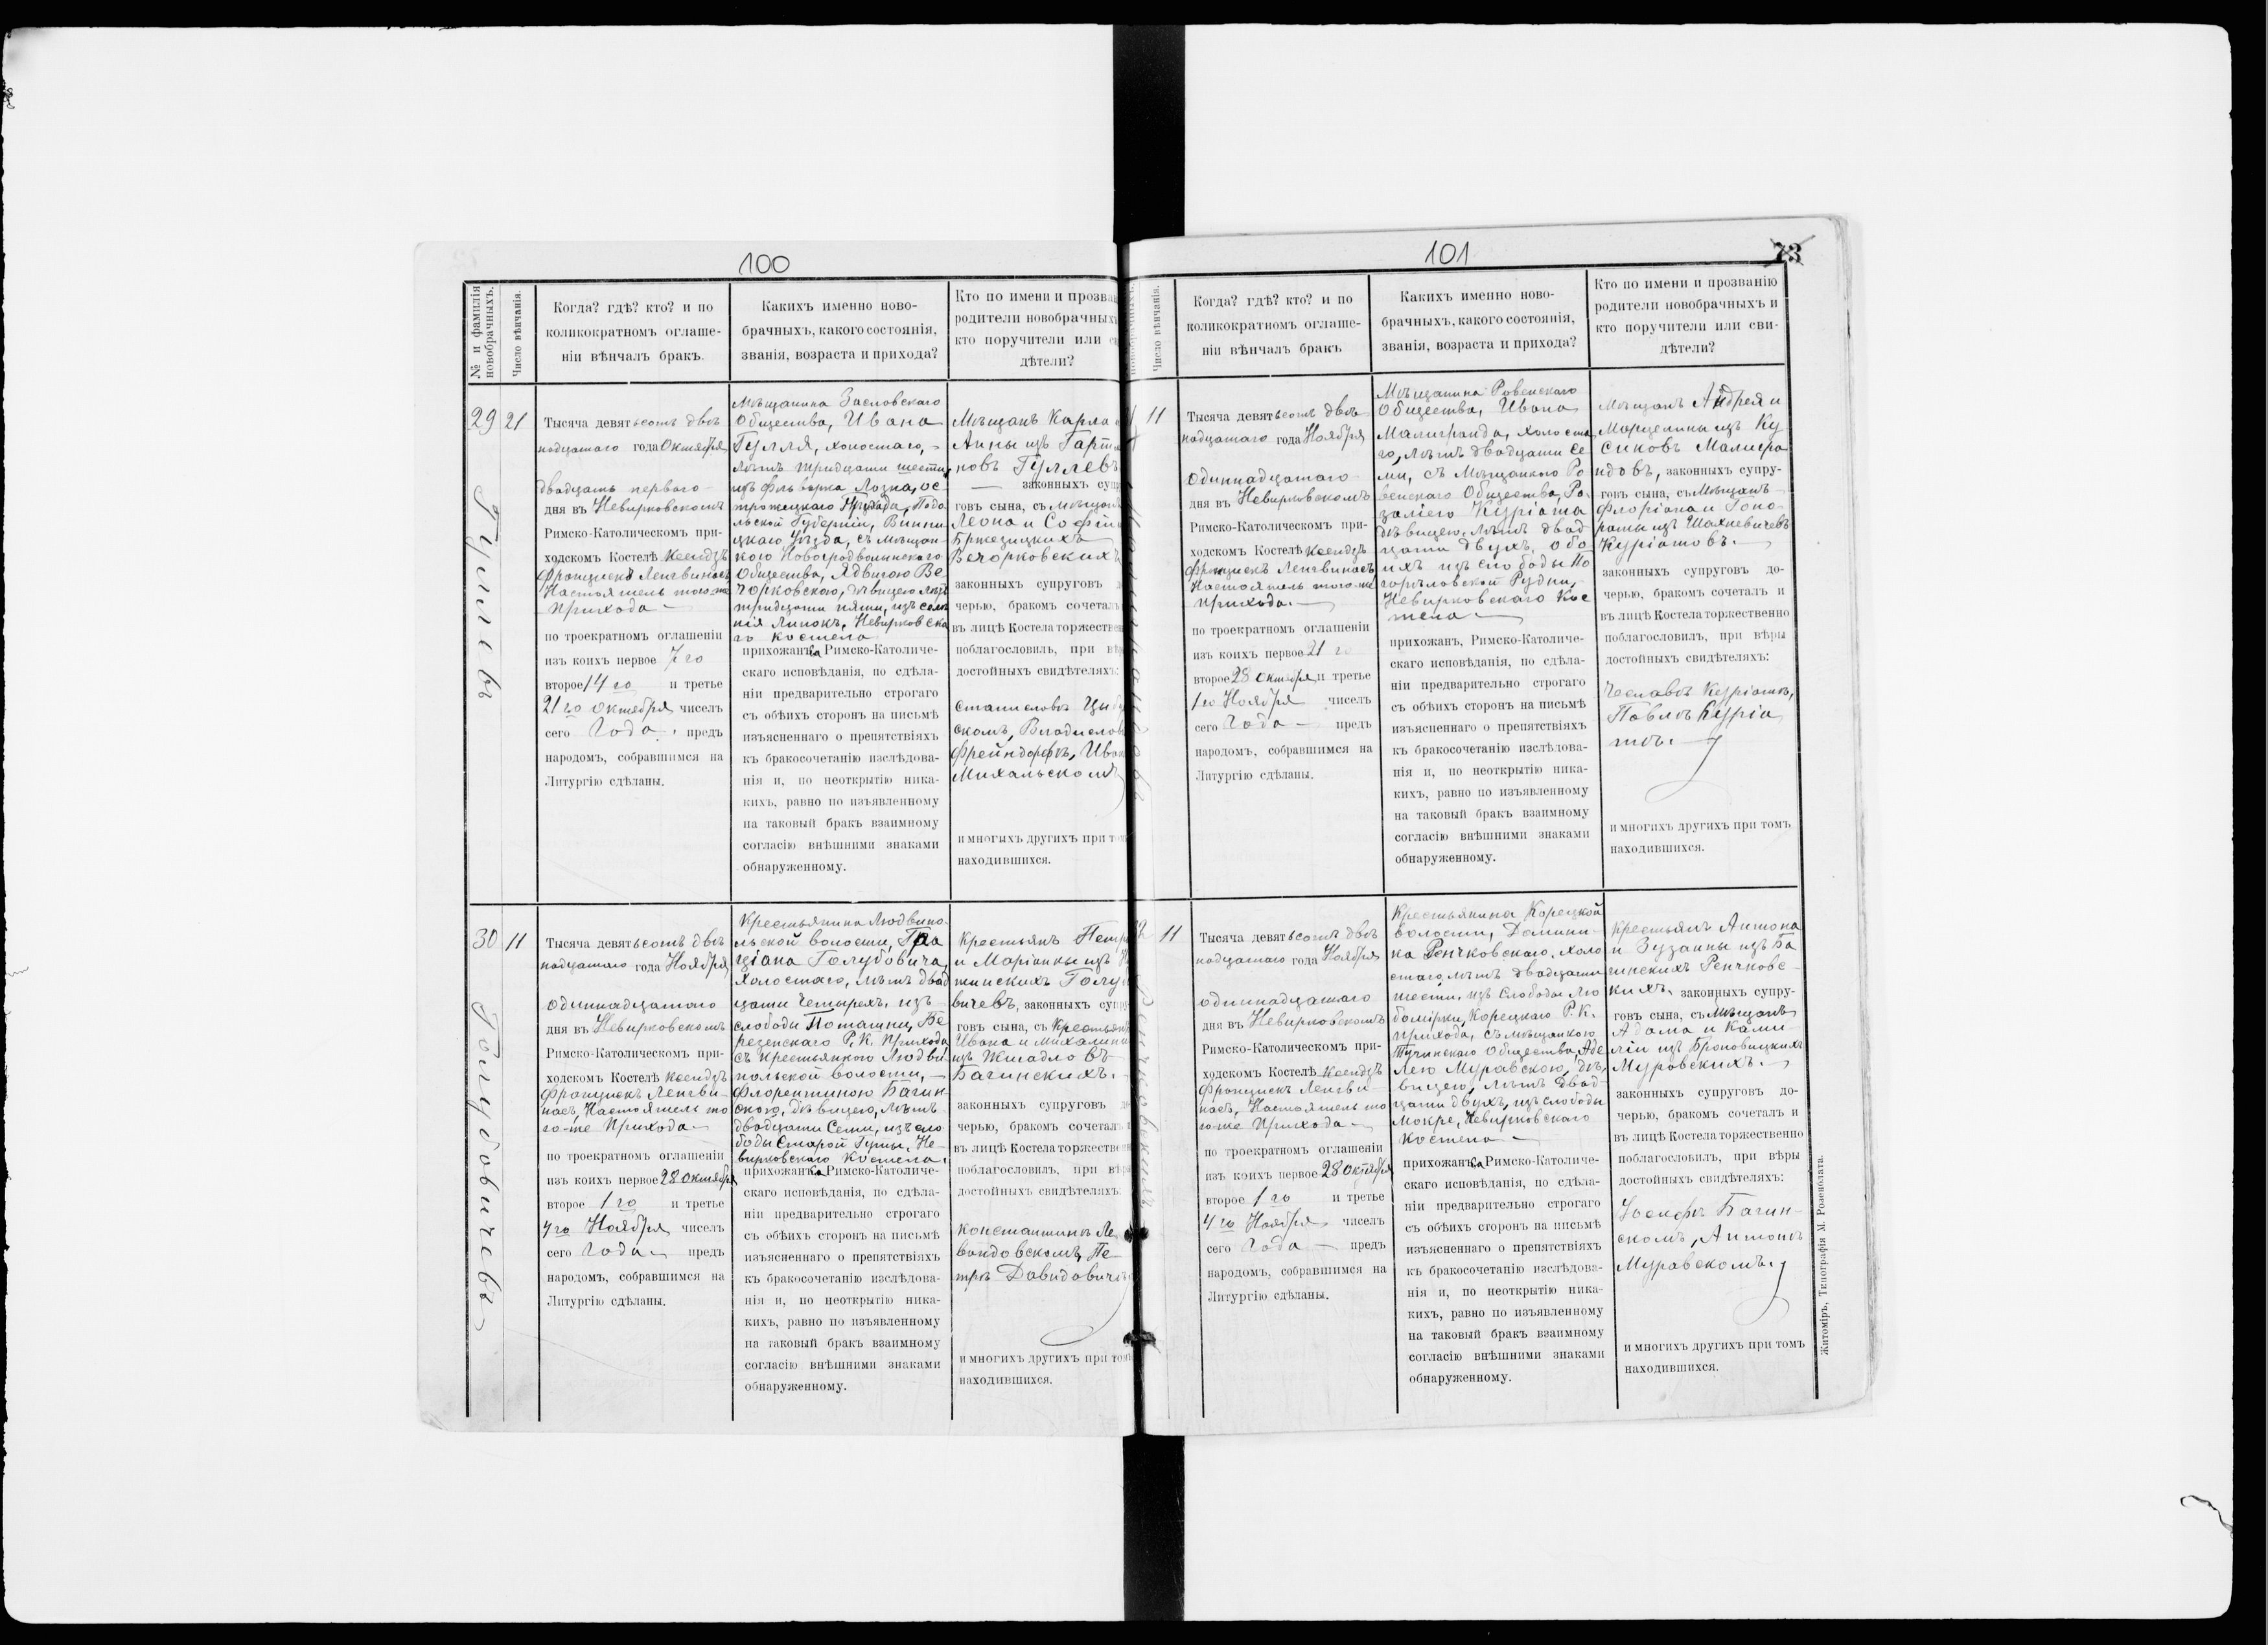 100
№ и фамилія
новобрачныхъ.
Число вѣнчанія.
Когда? гдѣ? кто? и по
коликократномъ оглаше-
ніи вѣнчалъ бракъ.
Какихъ именно ново-
брачныхъ, какого состоянія,
званія, возраста и прихода?
Кто по имени и прозва
родители новобрачных
кто поручители или с
дѣтели?
29
21
Гуллевъ
Тысяча девятьсотъ двѣ
надцатаго года Октября
двадцать перваго
дня въ Невирковскомъ
Римско-Католическомъ при-
ходскомъ Костелѣ Ксендзъ
Францискъ Ленгвинасъ
Настоятель того-же
Прихода
по троекратномъ оглашеніи
изъ коихъ первое 7го
второе 14го и третье
21го Октября чиселъ
сего Года предъ
народомъ, собравшимся на
Литургію сдѣланы.
Мѣщанина Заславскаго
Общества, Ивана
Гулля, холостаго,
лѣтъ тридцати шести,
изъ фольварка Лозна, ос-
трожецкаго Прихода, Подо
льской Губерніи, Винни
цкаго Уѣзда, съ мѣщан-
кою Новоградволынскаго
Общества, Ядвигою Ве-
чорковскою, дѣвицею лѣтъ
тридцати пяти, изъ селе
нія Липокъ, Невирковска
го костела
прихожанка Римско-Католиче-
скаго исповѣданія, по сдѣла-
ніи предварительно строгаго
съ обѣихъ сторонъ на письмѣ
изъясненнаго о препятствіяхъ
къ бракосочетанію изслѣдова-
нія и, по неоткрытію ника-
кихъ, равно по изъявленному
на таковый бракъ взаимному
согласію внѣшними знаками
обнаруженному.
Мѣщанъ Карла и
Анны изъ Гартм
новъ Гуллевъ
законныхъ суп
говъ сына, съ мѣщан
Леона и Софіи
Бржезицкихъ
Вечорковскихъ
законныхъ супруговъ
черью, бракомъ сочеталъ
въ лицѣ Костела торжествен
поблагословилъ, при вѣ
достойныхъ свидѣтеляхъ:
Станиславъ Цыбу
скомъ, Владислав
Фрейндорфъ, Иван
Михальскомъ
и многыхъ другихъ при то
находившихся.
30
11
Голубовичевъ
Тысяча девятьсотъ двѣ
надцатаго года Ноября
одиннадцатаго
дня въ Невирковскомъ
Римско-Католическомъ при-
ходскомъ Костелѣ Ксендзъ
Францискъ Ленгви-
насъ, Настоятель то
го-же Прихода
по троекратномъ оглашеніи
изъ коихъ первое 28 октября
второе 1го и третье
4го Ноября чиселъ
сего Года предъ
народомъ, собравшимся на
Литургію сдѣланы.
Крестьянина Людвипо-
льской волости, Гра
ціана Голубовича,
холостаго, лѣтъ двад
цати четырехъ, изъ
слободы Поташни, Бе
резенскаго Р. К. Прихода
съ крестьянкою Людви-
польской волости,
Флорентиною Багин-
скою, дѣвицею, лѣтъ
двадцати семи, изъ сло
боды Старой Гуты, Не-
вирковскаго Костела,
прихожанка Римско-Католиче-
скаго исповѣданія, по сдѣла-
ніи предварительно строгаго
съ обѣихъ сторонъ на письмѣ
изъясненнаго о препятствіяхъ
къ бракосочетанію изслѣдова-
нія и, по неоткрытію ника-
кихъ, равно по изъявленному
на таковый бракъ взаимному
согласію внѣшними знаками
обнаруженному.
Крестьянъ Петр
и Маріанны изъ
тинскихъ Голу
вичевъ, законныхъ супру
говъ сына, съ крестьянъ
Ивана и Михалины
изъ Жигадловъ-
Багинскихъ.
законныхъ супруговъ д
черью, бракомъ сочеталъ
въ лицѣ Костела торжествен
поблагословилъ, при вѣр
достойныхъ свидѣтеляхъ:
Константинъ Ле
вандовскомъ, Пе-
тръ Давидовичъ
и многихъ другихъ при томъ
находившихся.
101
73
новобрачныхъ.
Число вѣнчанія.
Когда? гдѣ? кто? и по
коликократномъ оглаше-
ніи вѣнчалъ бракъ
Какихъ именно ново-
брачныхъ, какого состоянія,
званія, возраста и прихода?
Кто по имени и прозванію
родители новобрачныхъ и
кто поручители или сви-
дѣтели?
11
Тысяча девятьсотъ двѣ
надцатаго года Ноября
Одиннадцатаго
дня въ Невирковскомъ
Римско-Католическомъ при-
ходскомъ Костелѣ Ксендзъ
Францискъ Ленгвинасъ
Настоятель того-же
Прихода.
по троекратномъ оглашеніи
изъ коихъ первое 21го
второе 28 октября и третье
1го Ноября чиселъ
сего Года предъ
народомъ, собравшимся на
Литургію сдѣланы.
Мѣщанина Ровенскаго
Общества, Ивана
Малигранда, холоста
го, лѣтъ двадцати се
ми, съ Мѣщанкою Ро
венскаго Общества, Ро-
заліею Куріата
дѣвицею, лѣтъ двад
цати двухъ, обо
ихъ изъ слободы По
горѣловской Рудни,
Невирковскаго Кос
тела
прихожанъ, Римско-Католиче-
скаго исповѣданія, по сдѣла-
ніи предварительно строгаго
съ обѣихъ сторонъ на письмѣ
изъясненнаго о препятствіяхъ
къ бракосочетанію изслѣдова-
нія и, по неоткрытію ника-
кихъ, равно по изъявленному
на таковый бракъ взаимному
согласію внѣшними знаками
обнаруженному.
Мѣщанъ Андрея и
Марцелины изъ Ку
сиковъ Малигра
ндовъ, законныхъ супру-
говъ сына, съ Мѣщанъ
Флоріана и Гоно-
раты изъ Шахневичевъ
Куріатовъ.
законныхъ супруговъ до-
черью, бракомъ сочеталъ и
въ лицѣ Костела торжественно
поблагословилъ, при вѣры
достойныхъ свидѣтеляхъ:
Чеславъ Куріатъ,
Павлъ Куріа
тъ.
и многихъ другихъ при томъ
находившихся.
11
Тысяча девятьсотъ двѣ
надцатаго года Ноября
одиннадцатаго
дня въ Невирковскомъ
Римско-Католическомъ при-
ходскомъ Костелѣ Ксендзъ
Францискъ Ленгви-
насъ, Настоятель то
го-же Прихода
по троекратномъ оглашеніи
изъ коихъ первое 28 Октября
второе 1го и третье
4го Ноября чиселъ
сего Года предъ
народомъ, собравшимся на
Литургію сдѣланы.
Крестьянина Корецкой
волости, Домини-
ка Ренчковскаго, холо
стаго, лѣтъ двадцати
шести, изъ Слободы Лю
бомірки, Корецкаго Р. К.
Прихода, съ мѣщанкою
Тучинскаго Общества, Аде
лею Муравскою, дѣ-
вицею, лѣтъ двад-
цати двухъ, изъ слободы
Мокре, Невирковскаго
Костела
прихожанка Римско-Католиче-
скаго исповѣданія, по сдѣла-
ніи предварительно строгаго
съ обѣихъ сторонъ на письмѣ
изъясненнаго о препятствіяхъ
къ бракосочетанію изслѣдова-
нія и, по неоткрытію ника-
кихъ, равно по изъявленному
на таковый бракъ взаимному
согласію внѣшними знаками
обнаруженному.
Крестьянъ Антона
и Зузанны изъ Ба
гинскихъ Ренчковс-
кихъ, законныхъ супру-
говъ сына, съ Мѣщанъ
Адама иКами-
ліи изъ Броновицкихъ
Муровскихъ.
законныхъ супруговъ до-
черью, бракомъ сочеталъ и
въ лицѣ Костела торжественно
поблагословилъ, при вѣры
достойныхъ свидѣтеляхъ:
Іосифъ Багин-
скомъ, Антонъ
Муравскомъ.
и многихъ другихъ при томъ
находившихся.
Житоміръ, Типографія М. Розенблата.